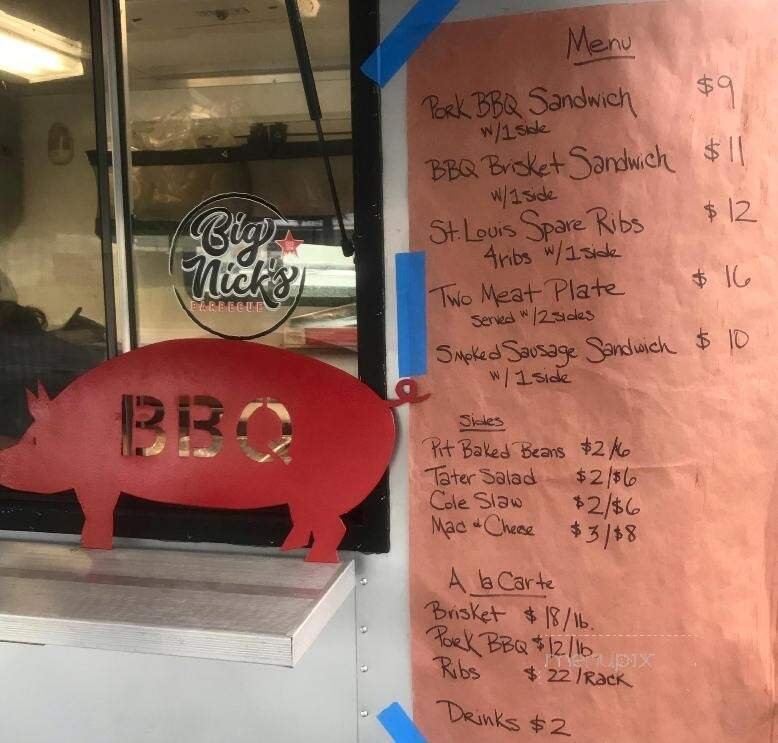 Big
Nick's
BARBECUE
BBQ
Menu
Pork BBQ Sandwich $9
w/1 side
BBQ Brisket Sandwich $11
w/1 side
St. Louis Spare Ribs $12
4 ribs w/1 side
Two Meat Plate $16
Served w/2 sides
Smoked Sausage Sandwich $10
w/1 side
Sides
Pit Baked Beans $2/6
Tater Salad $2/$6
Cole Slaw $2/$6
Mac & Cheese $3/$8
A la Carte
Brisket $18/lb.
Pork BBQ $12/lb
Ribs $22/Rack
Drinks $2
menupix